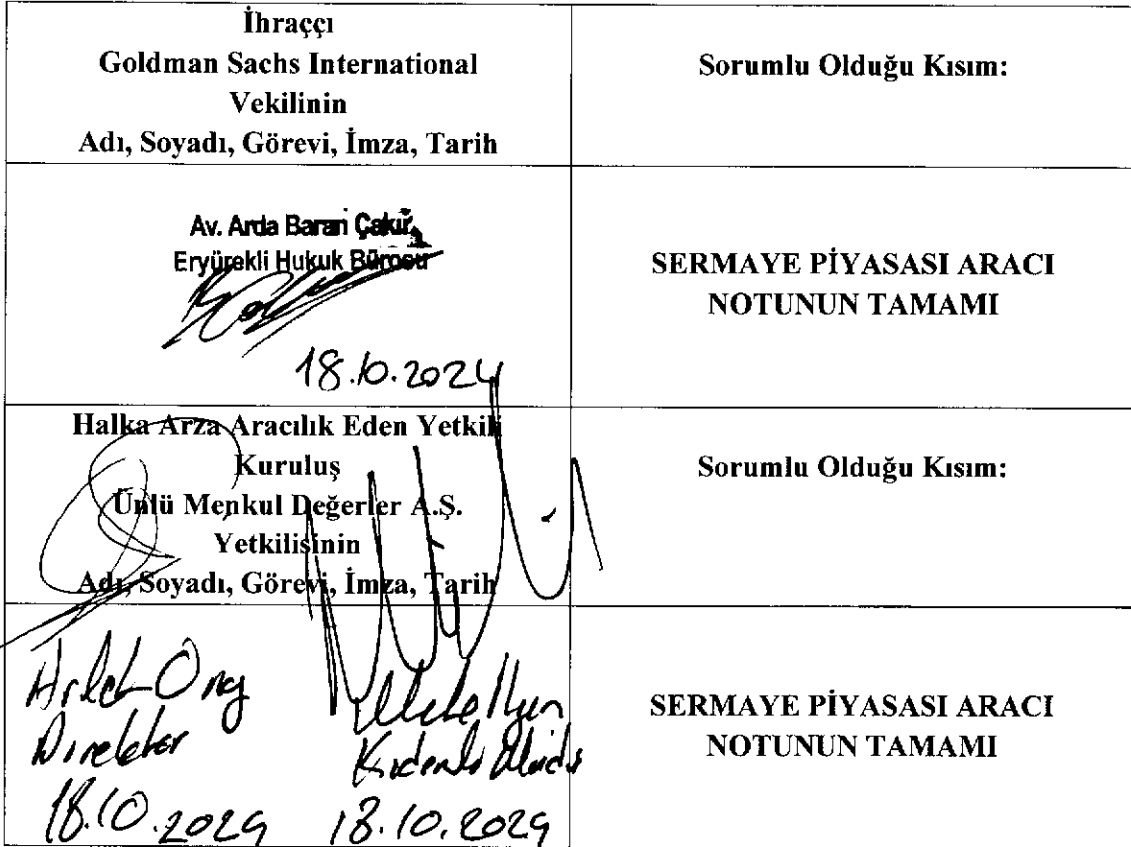 İhraççı
Goldman Sachs International
Vekilinin
Adı, Soyadı, Görevi, İmza, Tarih
Sorumlu Olduğu Kısım:
Av. Arda Baran Çakır
Eryürekli Hukuk Bürosu
18.10.2024
SERMAYE PİYASASI ARACI
NOTUNUN TAMAMI
Halka Arza Aracılık Eden Yetkili
Kuruluş
Ünlü Menkul Değerler A.Ş.
Yetkilisinin
Adı, Soyadı, Görevi, İmza, Tarih
Sorumlu Olduğu Kısım:
Direktör
18.10.2024
18.10.2024
SERMAYE PİYASASI ARACI
NOTUNUN TAMAMI